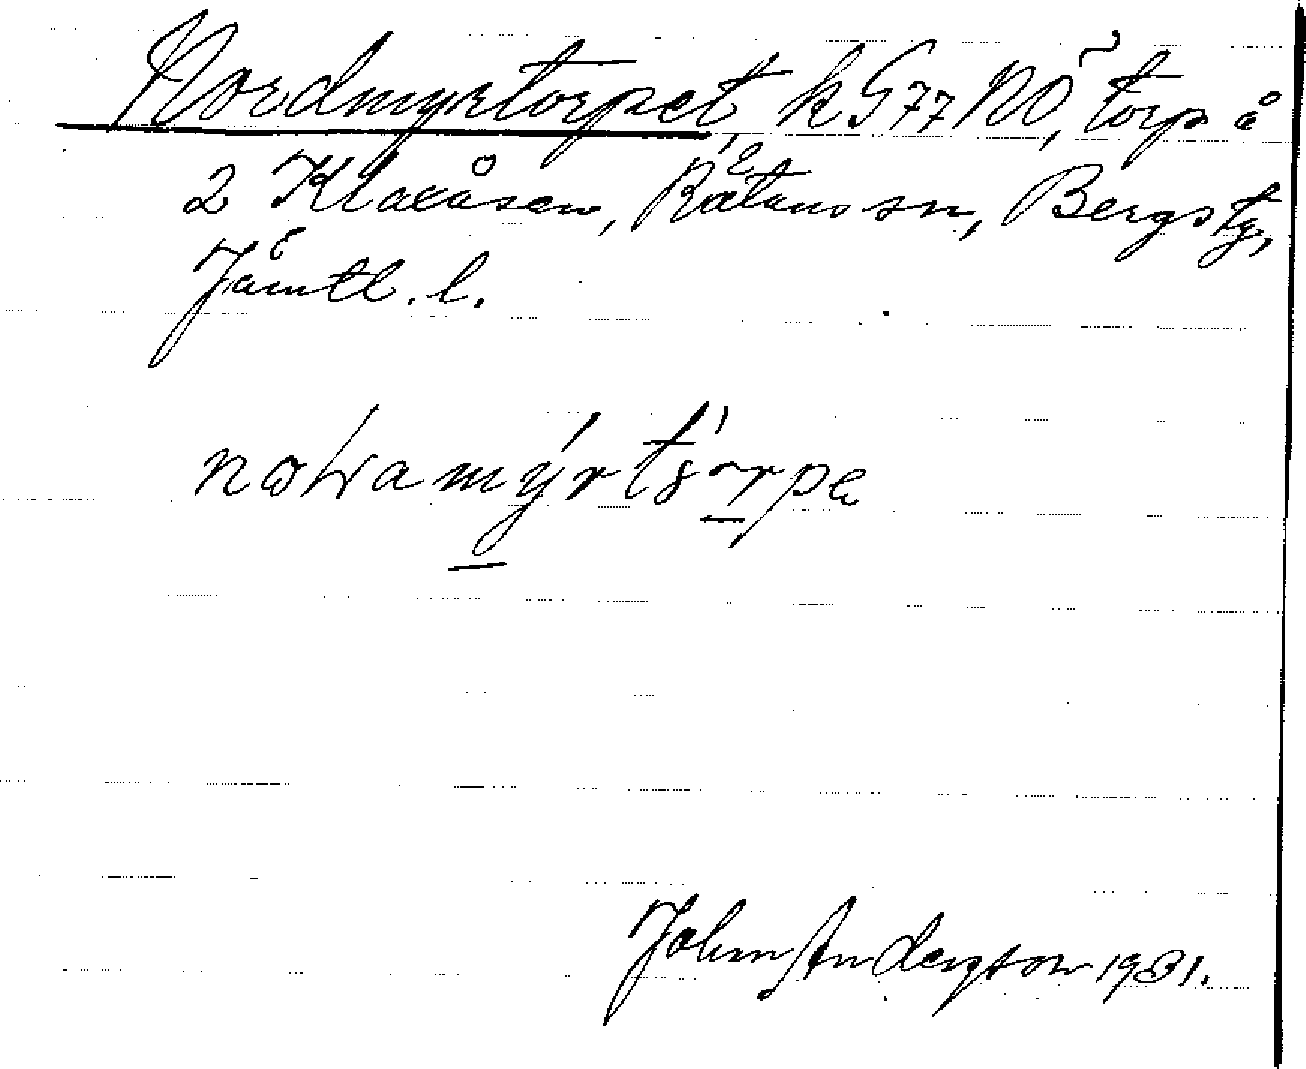 Nordmyrtorpet, k G 77 NÖ, torp å
2 Klaxåsen, Rätans sn, Bergs tg,
Jämtl. l.
John Andersson 1931.